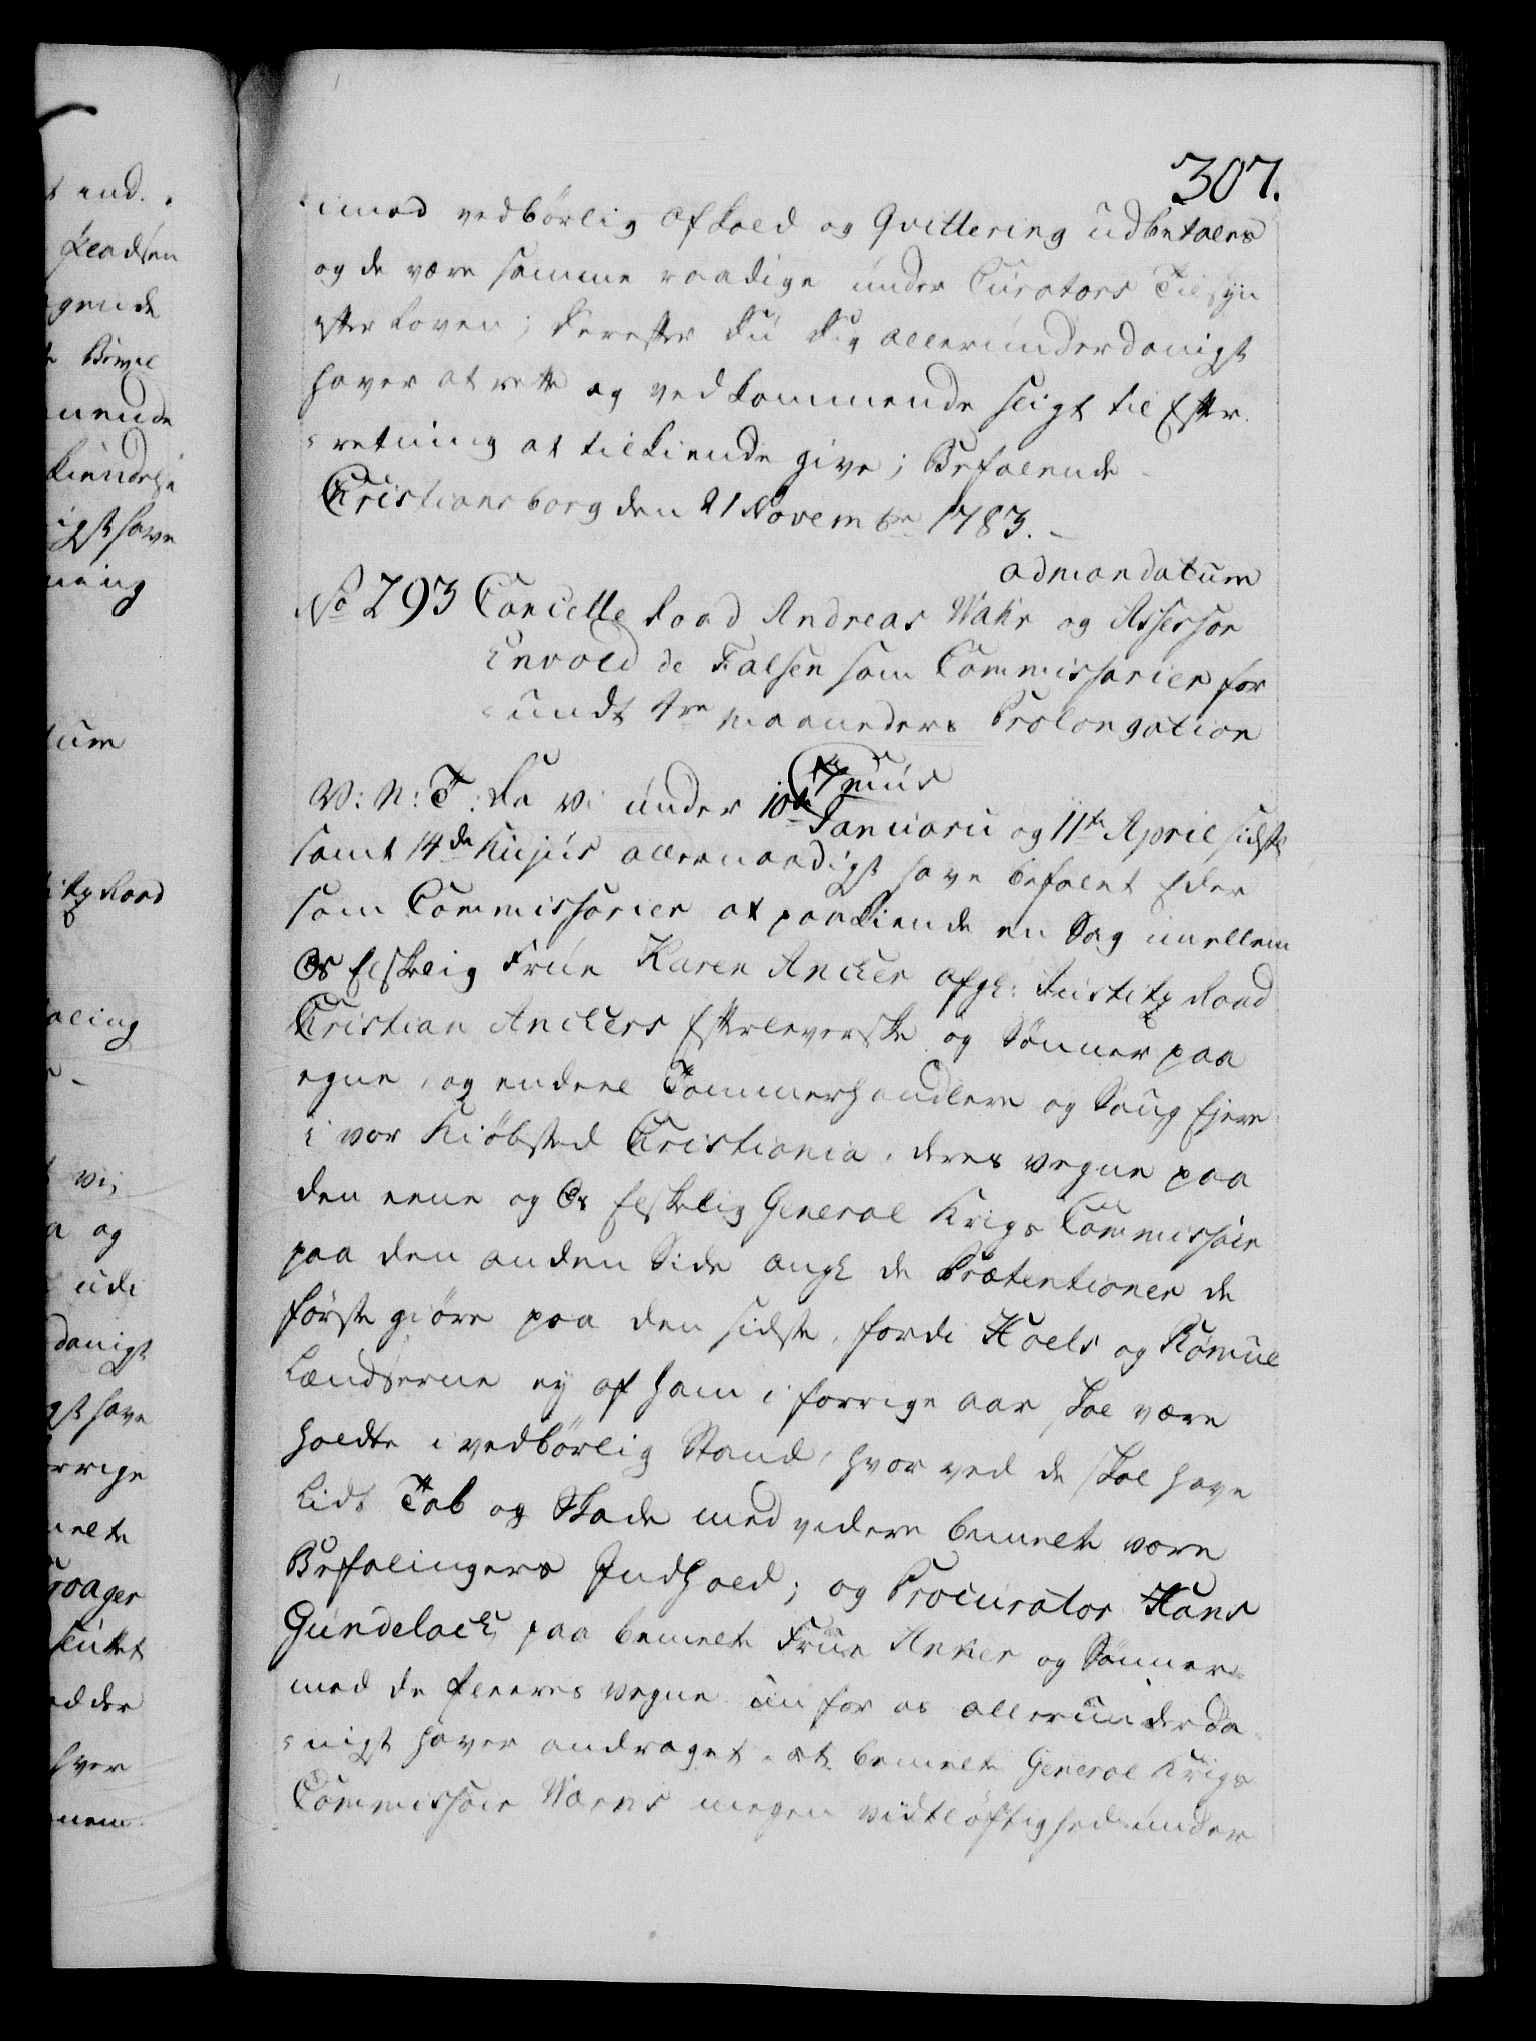 307.
imod vedbörlig Afkald og Qvittering udbetales
og de være samme raadige under Curators Tilsyn
efter Loven; Derefter Du dig allerunderdanigst
haver at rette og vedkommende sligt til Efter-
retning at tilkiende give; Befalende
Christiansborg den 21 Novembr 1783.
ad mandatum
No 293 Cancellie Raad Andreas Wahr og Assessor
Envold de Falsen som Commissarier for
undt 4re maaneders Prolongation
V: A: T: Da Vi under 10de Januarii og 11te April sidst
samt 14de hujus allernaadigst have befalet Eder
som Commissarier at paakiende en Sag imellem
Os Elskelig Frue Karen Ancher afgl: Justitz Raad
Christian Anchers Efterleverske og Sönner paa
egne, og endeel Tommerhandlere og Saug Ejere
i vor Kiöbsted Christiania, deres vegne paa
den eene og Os Elskelig General Krigs Commissair
paa den anden Side angl de Prætentioner de
förste giöre paa den sidste, fordi Hoels og Römue
Lændserne ey af ham i forrige aar skal være
holdte i vedbörlig Stand, hvorved de skal have
Lidt Tab og Skade med videre bemelte vore
Befalingers Indhold; og Procurator Hans
Gundelach paa bemelte Frue Anker og Sönner
med de fleeres vegne nu for os allerunderda-
nigst haver andraget, at bemelte General Krigs
Commissair Warns megen vidtlöftighed under